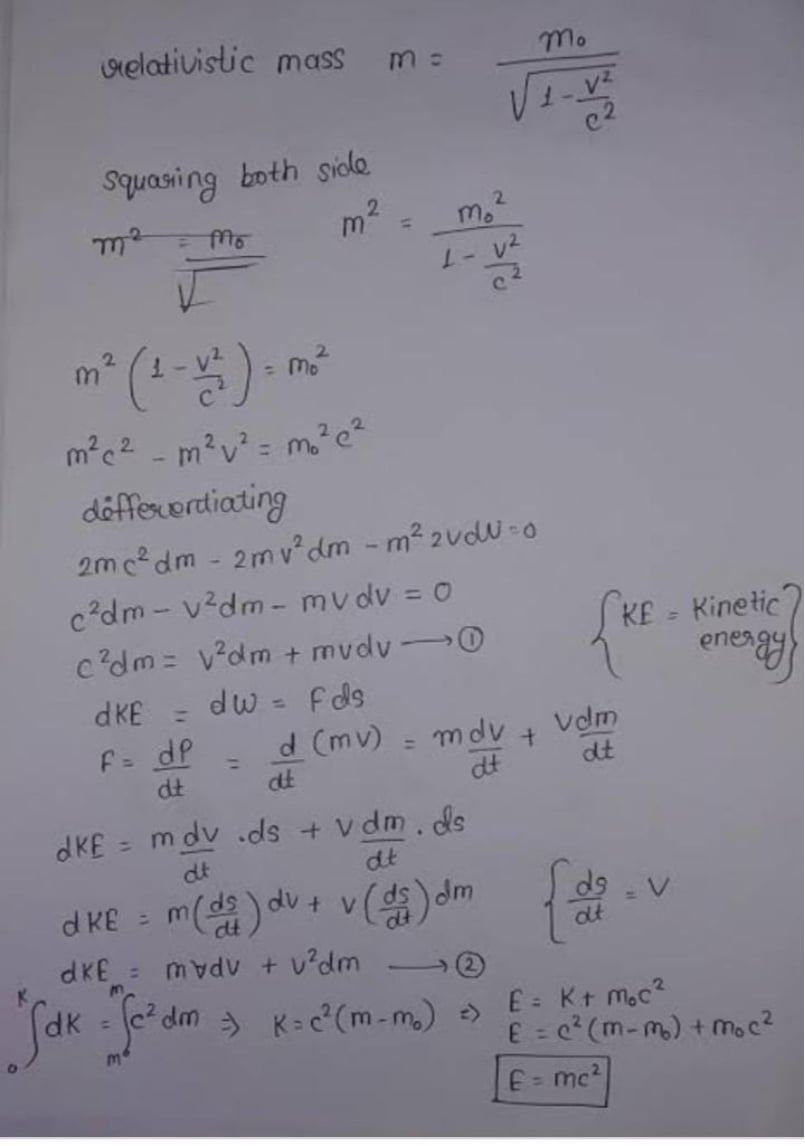 relativistic mass m = m₀ / √(1 - v²/c²)
Squaring both side
m² = m₀ / √
m² = m₀² / (1 - v²/c²)
m² (1 - v²/c²) = m₀²
m²c² - m²v² = m₀²c²
differentiating
2mc²dm - 2mv²dm - m² 2vdv = 0
c²dm - v²dm - mvdv = 0
c²dm = v²dm + mvdv ⟶ ①
{KE = Kinetic energy}
dKE = dw = Fds
F = dP/dt = d/dt (mv) = m dv/dt + vdm/dt
dKE = m dv/dt .ds + v dm/dt . ds
dKE = m(ds/dt) dv + v(ds/dt) dm { ds/dt = v
dKE = mvdv + v²dm ⟶ ②
∫₀ᴷ dK = ∫ₘ₀ᵐ c²dm ⇒ K = c²(m - m₀) ⇒ E = K + m₀c²
E = c²(m - m₀) + m₀c²
E = mc²